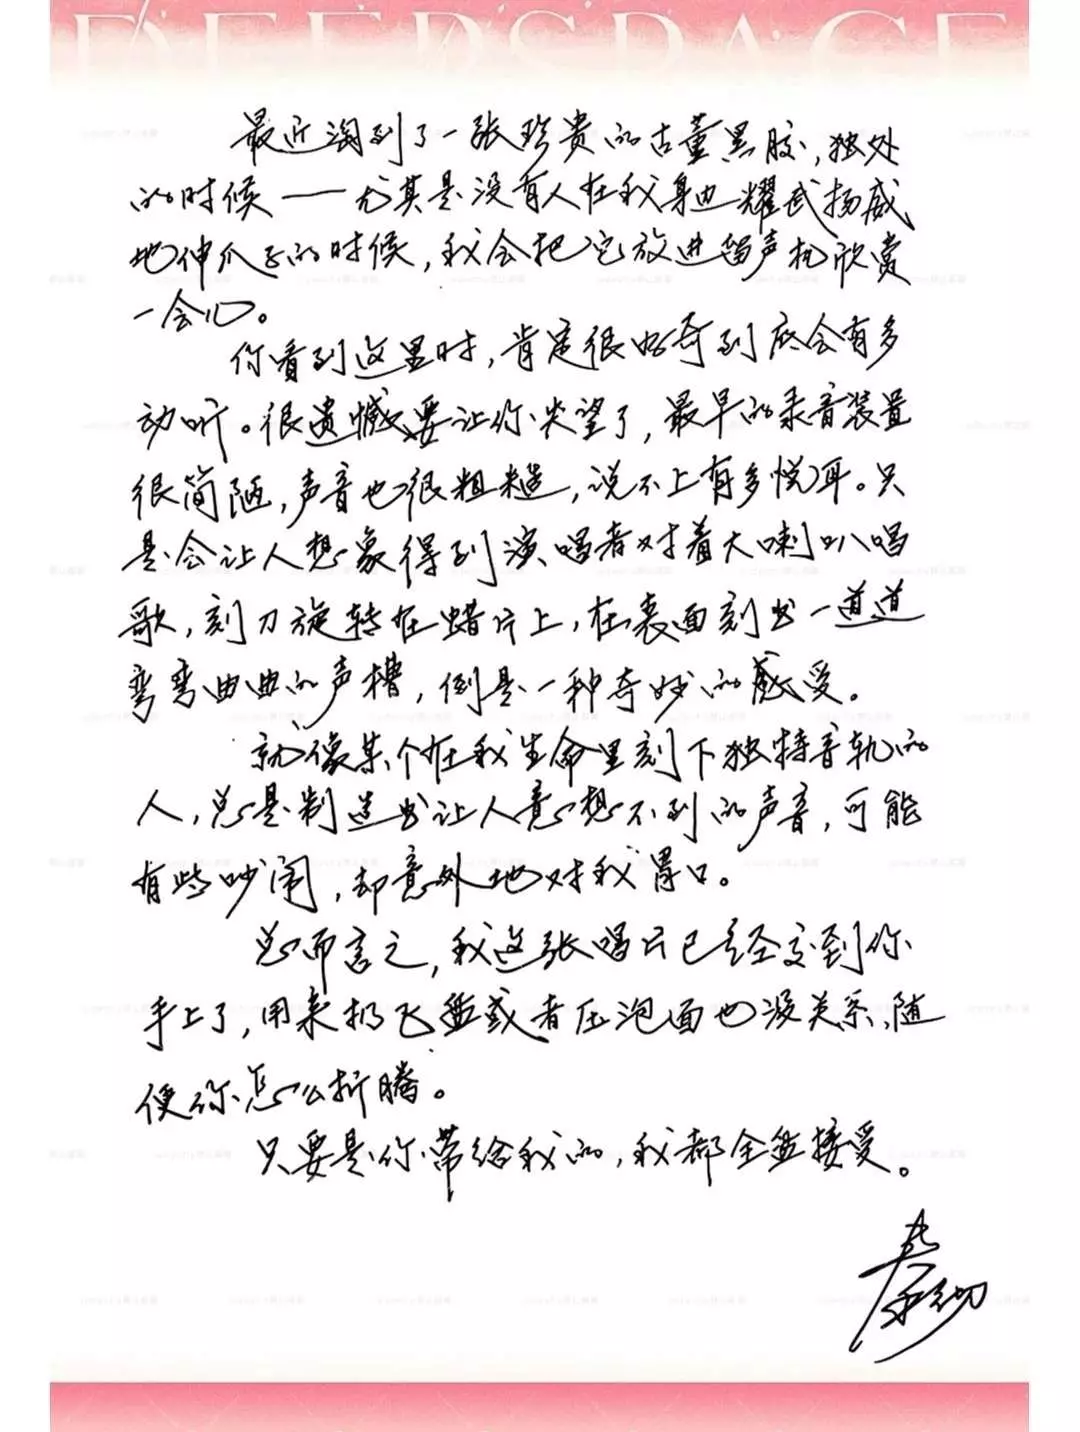 DEEPSPACE
最近淘到了一张珍贵的古董黑胶,独处
的时候——尤其是没有人在我身边耀武扬威
地伸爪子的时候,我会把它放进留声机欣赏
一会儿。
你看到这里时,肯定很好奇到底会有多
动听。很遗憾要让你失望了,最早的录音装置
很简陋,声音也很粗糙,说不上有多悦耳。只
是会让人想象得到演唱者对着大喇叭唱
歌,刻刀旋转在蜡片上,在表面刻出一道道
弯弯曲曲的声槽,倒是一种奇妙的感受。
就像某个在我生命里刻下独特音轨的
人,总是制造出让人意想不到的声音,可能
有些吵闹,却意外地对我胃口。
总而言之,我这张唱片已经交到你
手上了,用来扔飞盘或者压泡面也没关系,随
便你怎么折腾。
只要是你带给我的,我都全盘接受。
秦彻